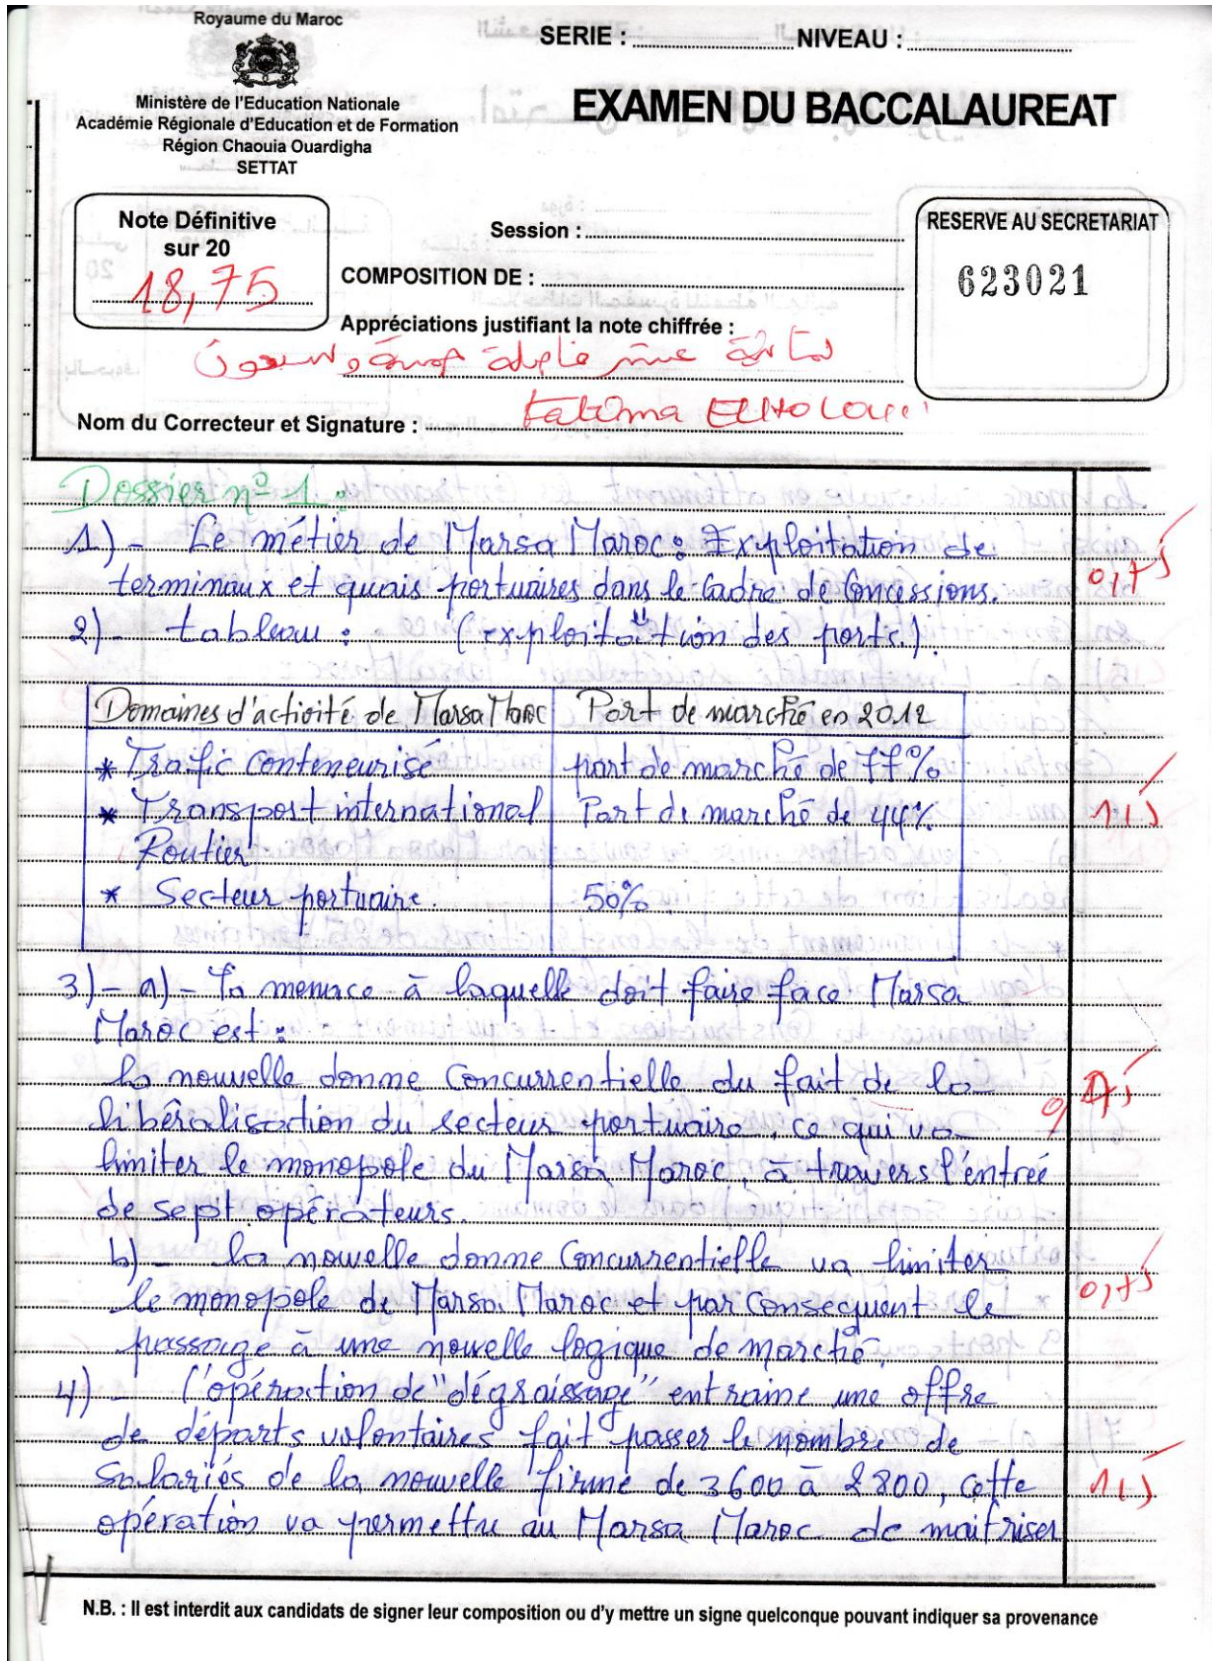 Royaume du Maroc
Ministère de l'Education Nationale
Académie Régionale d'Education et de Formation
Région Chaouia Ouardigha
SETTAT
SERIE : NIVEAU :
EXAMEN DU BACCALAUREAT
Note Définitive
sur 20
18,75
Session :
COMPOSITION DE :
Appréciations justifiant la note chiffrée :
Nom du Correcteur et Signature : Fatima
RESERVE AU SECRETARIAT
623021
Dossier n° 1 :
1) - Le métier de Marsa Maroc : Exploitation de
terminaux et quais portuaires dans le cadre de concessions.
0,75
2) - tableau : (exploitation des ports).
Domaines d'activité de Marsa Maroc Part de marché en 2012
* Trafic conteneurisé part de marché de 77%
* Transport international Part de marché de 44%
Routier
1,5
* Secteur portuaire. 50%
3) - a) - La menace à laquelle doit faire face Marsa
Maroc est :
la nouvelle donne concurrentielle du fait de la
libéralisation du secteur portuaire, ce qui va
limiter le monopole du Marsa Maroc, à travers l'entrée
de sept opérateurs.
b) - la nouvelle donne concurrentielle va limiter
le monopole de Marsa Maroc et par consequent le
0,75
passage à une nouvelle logique de marché.
4) - l'opération de "dégraissage" entraine une offre
de départs volontaires fait passer le nombre de
salariés de la nouvelle firme de 3600 à 2800, cette
1,5
opération va permettre au Marsa Maroc de maitriser
N.B. : Il est interdit aux candidats de signer leur composition ou d'y mettre un signe quelconque pouvant indiquer sa provenance